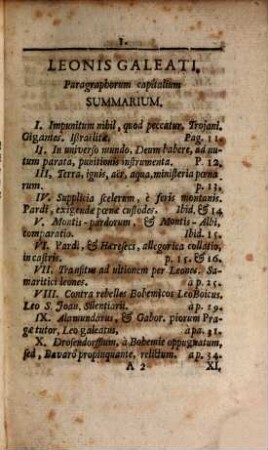 1.
LEONIS GALEATI,
Paragraphorum capitalium
SUMMARIUM.
I. Impunitum nihil, quod peccatur. Trojani.
Gigantes. Ißrailitæ. Pag. 11.
II. In universo mundo, Deum habere, ad nu-
tum parata, punitionis instrumenta. P. 12.
III. Terra, ignis, aër, aqua, ministeria pœna-
rum. p. 13.
IV. Supplicia scelerum, è feris montanis.
Pardi, exigendæ pœnæ custodes. Ibid, & 14
V. Montis-pardorum, & Montis-Albi,
comparatio. Ibid. 15.
VI. Pardi, & Hæreseos, allegorica collatio,
in castris. p. 15. & 16.
VII. Transitus ad ultionem per Leones. Sa-
maritici leones. à p. 25.
VIII. Contra rebelles Bohemicos Leo Boicus.
Leo S. Joan. Silentiarii. à p. 29.
IX. Alamundarus, & Gabor. piorum Pra-
gæ tutor, Leo galeatus, à pa. 31.
X. Drosendorffium, à Bohemis oppugnatum,
sed, Bavaro propinquante, relictum. ap. 34.
A 2 XI.